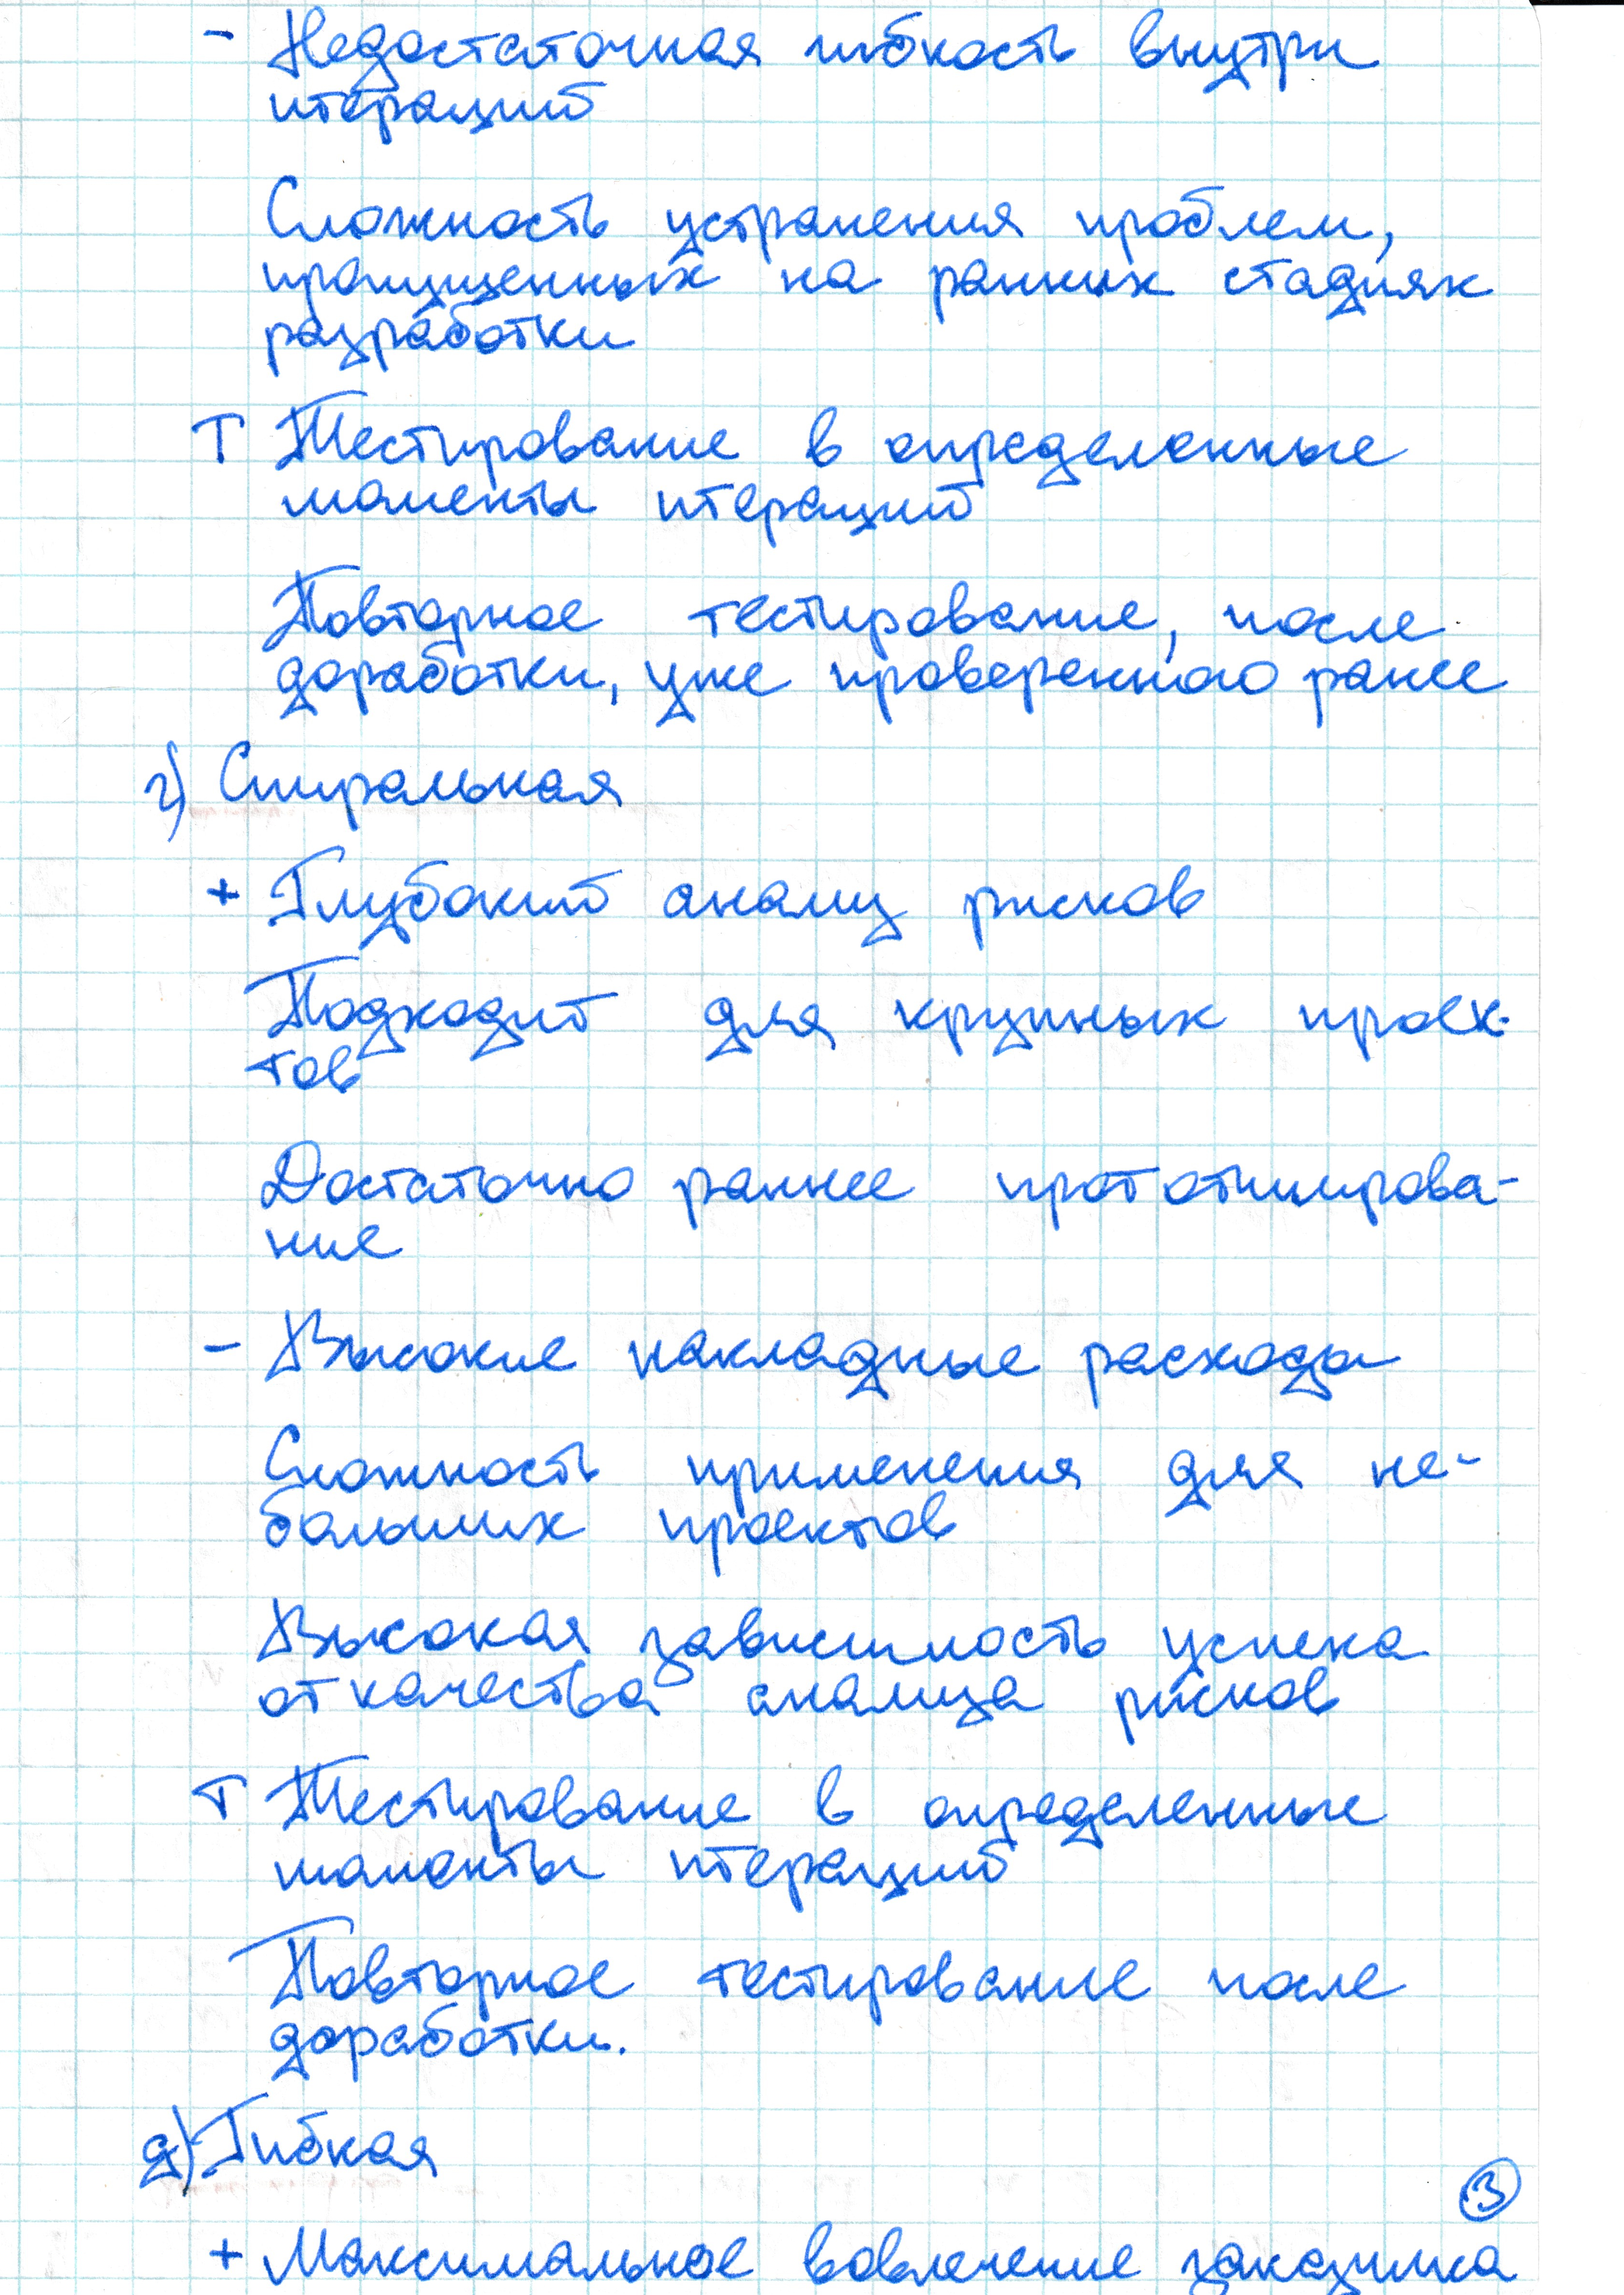 - Недостаточная гибкость внутри
итераций
Сложность устранения проблем,
пропущенных на ранних стадиях
разработки
Т Тестирование в определенные
моменты итераций
Повторное тестирование, после
доработки, уже проверенного ранее
г) Спиральная
+ Глубокий анализ рисков
Подходит для крупных проек-
тов
Достаточно раннее прототипирова-
ние
- Высокие накладные расходы
Сложность применения для не-
больших проектов
Высокая зависимость успеха
от качества анализа рисков
Т Тестирование в определенные
моменты итераций
Повторное тестирование после
доработки.
д) Гибкая
3
+ Максимальное вовлечение заказчика